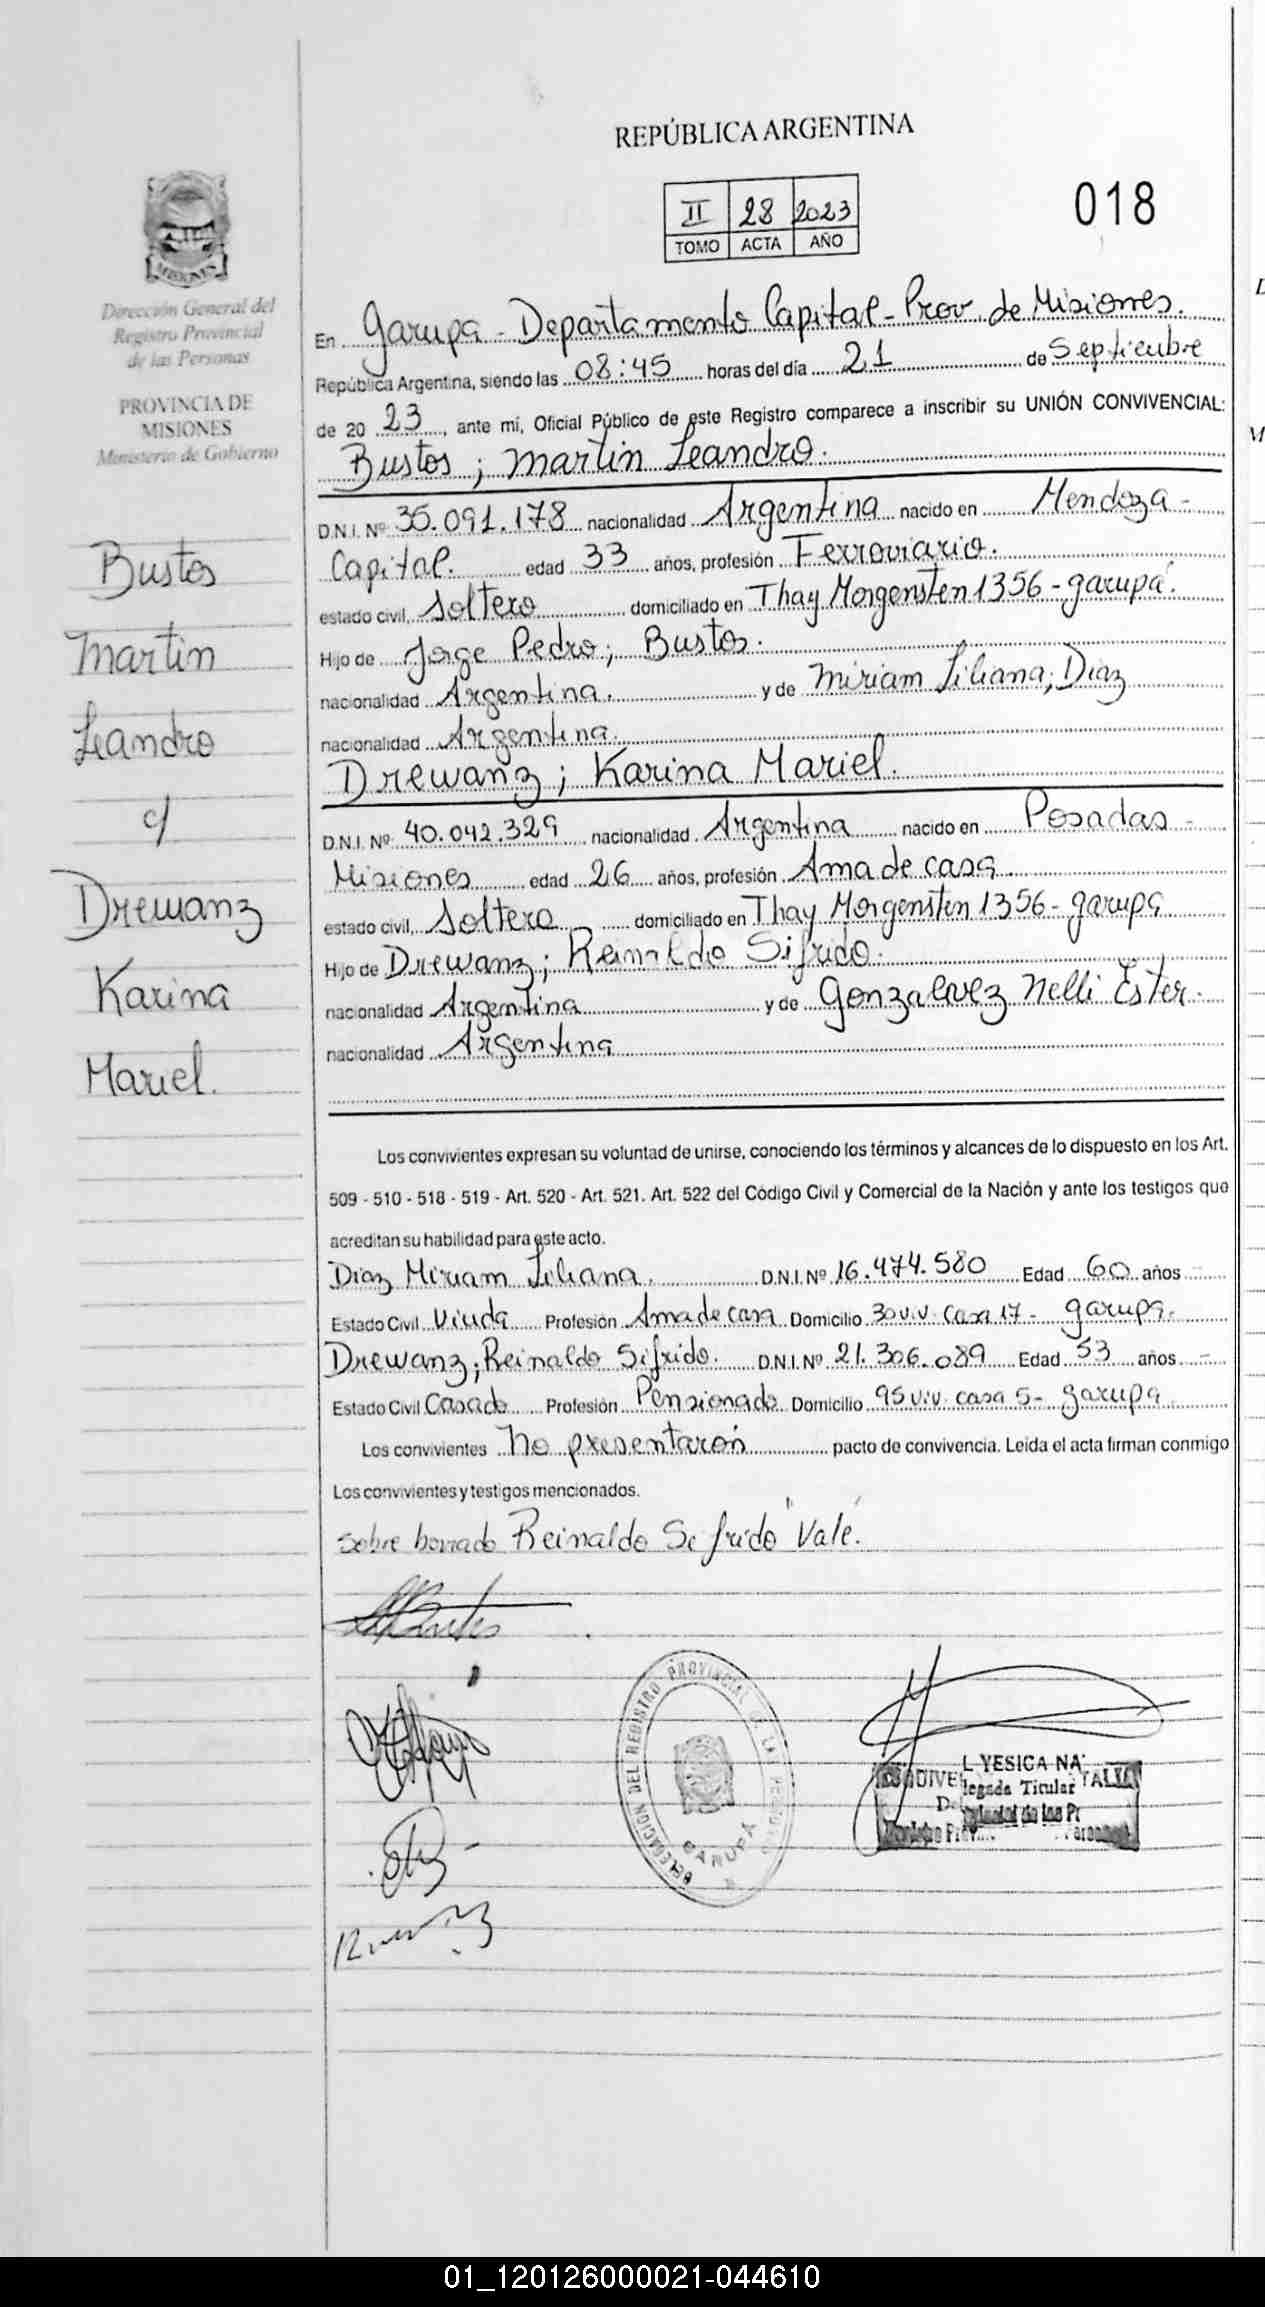 REPÚBLICA ARGENTINA
II 28 2023
TOMO ACTA AÑO
018
MISIONES
Dirección General del
Registro Provincial
de las Personas
PROVINCIA DE
MISIONES
Ministerio de Gobierno
Bustos
Martin
Leandro
c/
Drewanz
Karina
Mariel.
En Garupa - Departamento Capital - Prov. de Misiones.
República Argentina, siendo las 08:45 horas del día 21 de Septiembre
de 20 23, ante mí, Oficial Público de este Registro comparece a inscribir su UNIÓN CONVIVENCIAL:
Bustos; Martin Leandro.
D.N.I. Nº 35.091.178 nacionalidad Argentina nacido en Mendoza -
Capital. edad 33 años, profesión Ferroviario.
estado civil, Soltero domiciliado en Thay Morgensten 1356 - Garupá.
Hijo de Jorge Pedro; Bustos.
nacionalidad Argentina. y de Miriam Liliana; Diaz
nacionalidad Argentina.
Drewanz; Karina Mariel.
D.N.I. Nº 40.042.329 nacionalidad Argentina nacido en Posadas -
Misiones edad 26 años, profesión Ama de casa.
estado civil, Soltera domiciliado en Thay Morgensten 1356 - Garupa
Hijo de Drewanz; Reinaldo Sifrido.
nacionalidad Argentina y de Gonzalvez Nelli Ester.
nacionalidad Argentina
Los convivientes expresan su voluntad de unirse, conociendo los términos y alcances de lo dispuesto en los Art.
509 - 510 - 518 - 519 - Art. 520 - Art. 521. Art. 522 del Código Civil y Comercial de la Nación y ante los testigos que
acreditan su habilidad para este acto.
Diaz Miriam Liliana. D.N.I. Nº 16.474.580 Edad 60 años
Estado Civil Viuda Profesión Ama de casa Domicilio 30 viv. Casa 17 - Garupa.
Drewanz; Reinaldo Sifrido. D.N.I. Nº 21.306.089 Edad 53 años -
Estado Civil Casado Profesión Pensionado Domicilio 95 viv. casa 5 - Garupa
Los convivientes no presentaron pacto de convivencia. Leida el acta firman conmigo
Los convivientes y testigos mencionados.
Sobre borrado Reinaldo Sifrido "Vale.
DELEGACION DEL REGISTRO PROVINCIAL DE LA
GARUPÁ
L YESICA NA
legada Titular
01_120126000021-044610